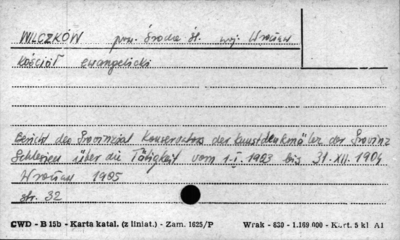 WILCZKÓW pow. Środa Śl. woj. Wrocław
kościół ewangelicki
Bericht des Provinzial Konservators der Kunstdenkmäler der Provinz
Schlesien über die Tätigkeit vom 1.I. 1903 bis 31.XII. 1904
Wrocław 1905
str. 32
CWD - B 15b - Karta katal. (z liniat.) - Zam. 1625/P Wrak - 630 - 1.169 000 - Kart. 5 kl A1